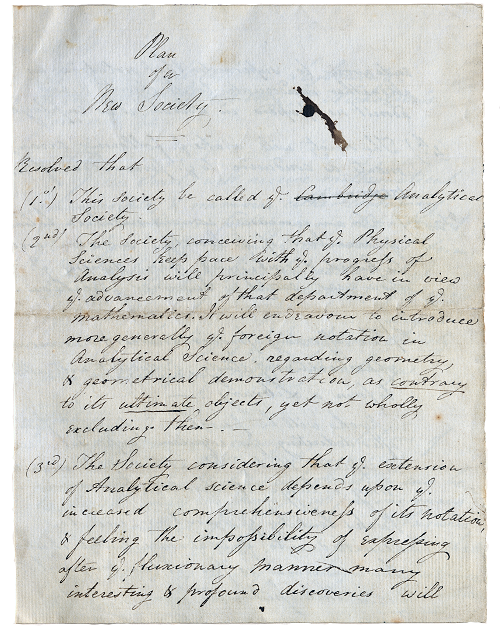 Plan
of a
New Society.
Resolved that
(1st) This Society be called ye. Cambridge Analytical
Society.
(2nd) The Society, conceiving that ye. Physical
Sciences keep pace with ye. progress of
Analysis will principally have in view
ye. advancement of that department of ye.
mathematics. It will endeavour to introduce
more generally ye. foreign notation in
Analytical Science, regarding geometry,
& geometrical demonstration, as contrary
to its ultimate objects, yet not wholly
excluding them. —
(3rd) The Society considering that ye. extension
of Analytical science depends upon ye.
increased comprehensiveness of its notation,
& feeling the impossibility of expressing
after ye. fluxionary manner many
interesting & profound discoveries will